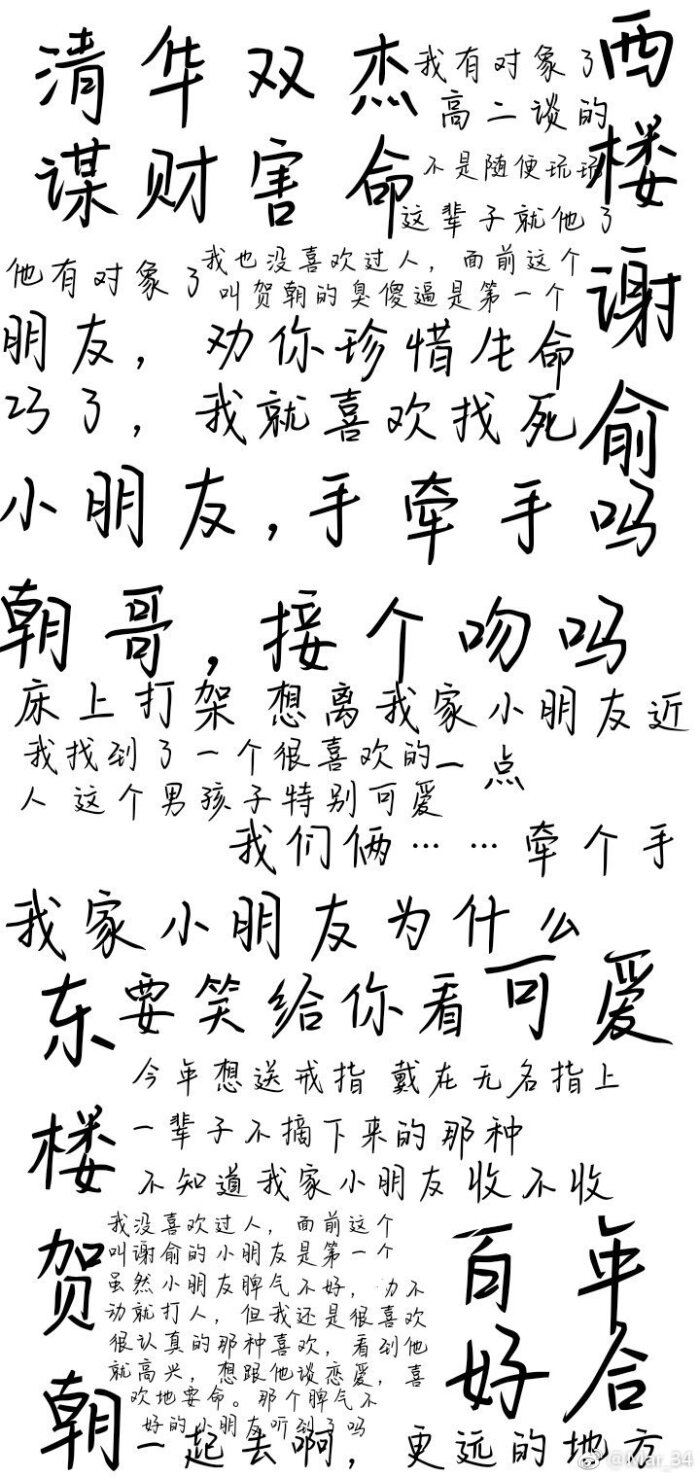 清华双杰
谋财害命
西楼谢俞
我有对象了
高二谈的
不是随便玩玩
这辈子就他了
他有对象了
我也没喜欢过人，面前这个
叫贺朝的臭傻逼是第一个
朋友，劝你珍惜生命
巧了，我就喜欢找死
小朋友，手牵手吗
朝哥，接个吻吗
床上打架
想离我家小朋友近
一点
我找到了一个很喜欢的
人 这个男孩子特别可爱
我们俩……牵个手
我家小朋友为什么
可爱
要笑给你看
东楼贺朝
今年想送戒指 戴在无名指上
一辈子不摘下来的那种
不知道我家小朋友收不收
我没喜欢过人，面前这个
叫谢俞的小朋友是第一个
虽然小朋友脾气不好，力不
动就打人，但我还是很喜欢
很认真的那种喜欢，看到他
就高兴，想跟他谈恋爱，喜
欢地要命。那个脾气不
好的小朋友听到了吗
百年
好合
一起去啊，更远的地方
@Mar_34